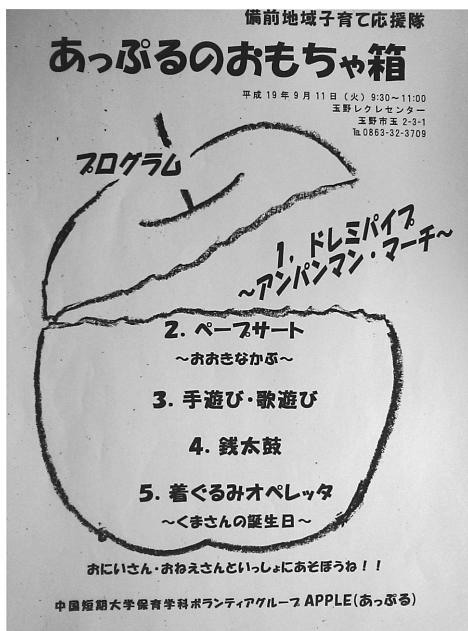 備前地域子育て応援隊
あっぷるのおもちゃ箱
平成19年9月11日（火）9:30～11:00
玉野レクレセンター
玉野市玉2-3-1
℡0863-32-3709
プログラム
1. ドレミパイプ
～アンパンマン・マーチ～
2. ペープサート
～おおきなかぶ～
3. 手遊び・歌遊び
4. 銭太鼓
5. 着ぐるみオペレッタ
～くまさんの誕生日～
おにいさん・おねえさんといっしょにあそぼうね！！
中国短期大学保育学科ボランティアグループAPPLE(あっぷる)